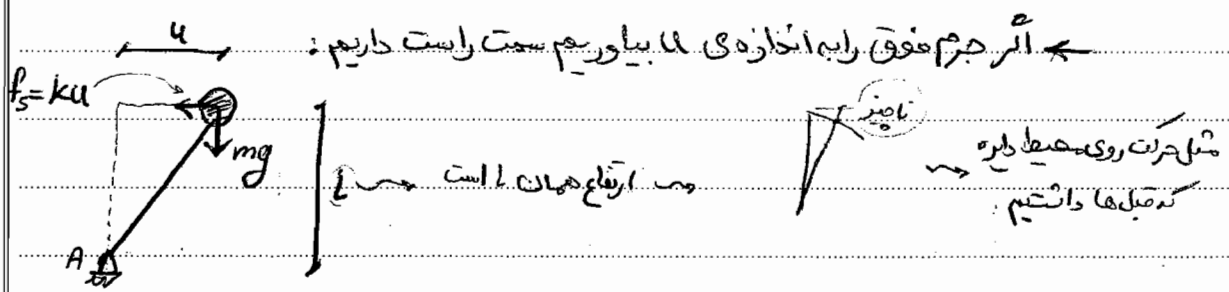 ← اگر جرم فوق را به اندازه‌ی u بیاوریم سمت راست داریم:
u
fs = ku
mg
L ⇝ ارتفاع همان L است ⇝
ناچیز
مثل حرکت روی محیط دایره
که قبل‌ها داشتیم.
A